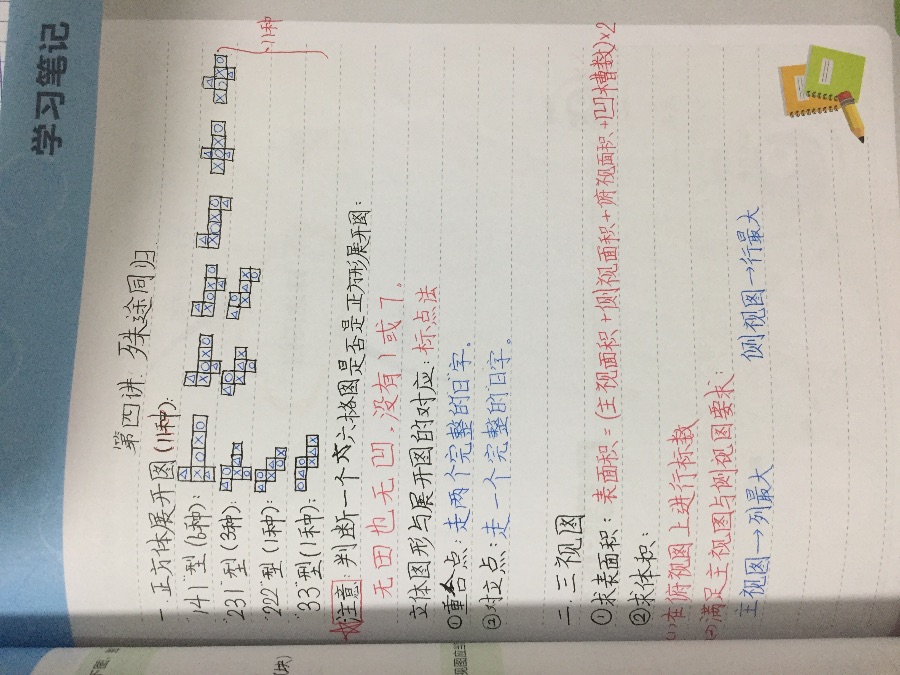 学习笔记
第四讲：殊途同归
一 正方体展开图(11种)：
"141"型(6种)：
"231"型(3种)：
"222"型(1种)：
"33"型(1种)：
11种
注意：判断一个六格图是否是正方形展开图：
无田也无凹，没有1或7。
立体图形与展开图的对应：标点法
①重合点：走两个完整的日字。
②对立点：走一个完整的日字。
二、三视图
①求表面积：表面积=(主视面积+侧视面积+俯视面积+凹槽数)×2
②求体积：
(1)在俯视图上进行标数
(2)满足主视图与侧视图要求：
主视图→列最大 侧视图→行最大